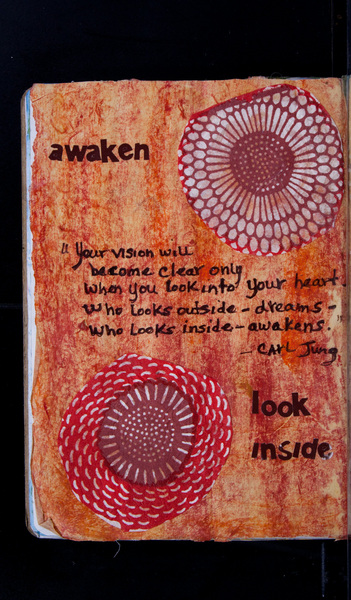 awaken
"Your vision will
become clear only
when you look into your heart.
Who looks outside - dreams -
Who looks inside - awakens."
- CARL Jung
look
inside